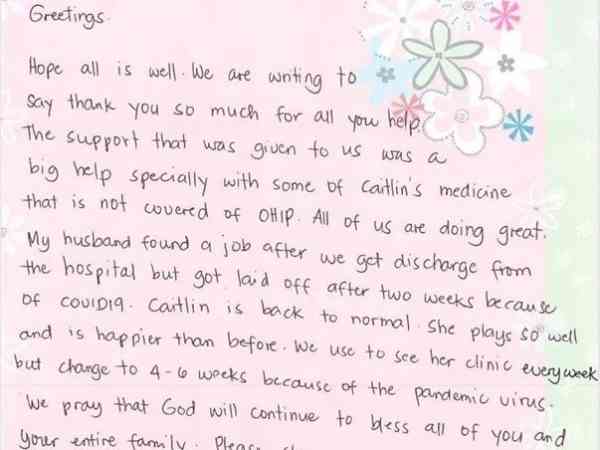 Greetings.
Hope all is well. We are writing to
say thank you so much for all you help.
The support that was given to us was a
big help specially with some of Caitlin's medicine
that is not covered of OHIP. All of us are doing great.
My husband found a job after we get discharge from
the hospital but got laid off after two weeks because
of COVID19. Caitlin is back to normal. She plays so well
and is happier than before. We use to see her clinic every week
but change to 4-6 weeks because of the pandemic virus.
We pray that God will continue to bless all of you and
your entire family. Please